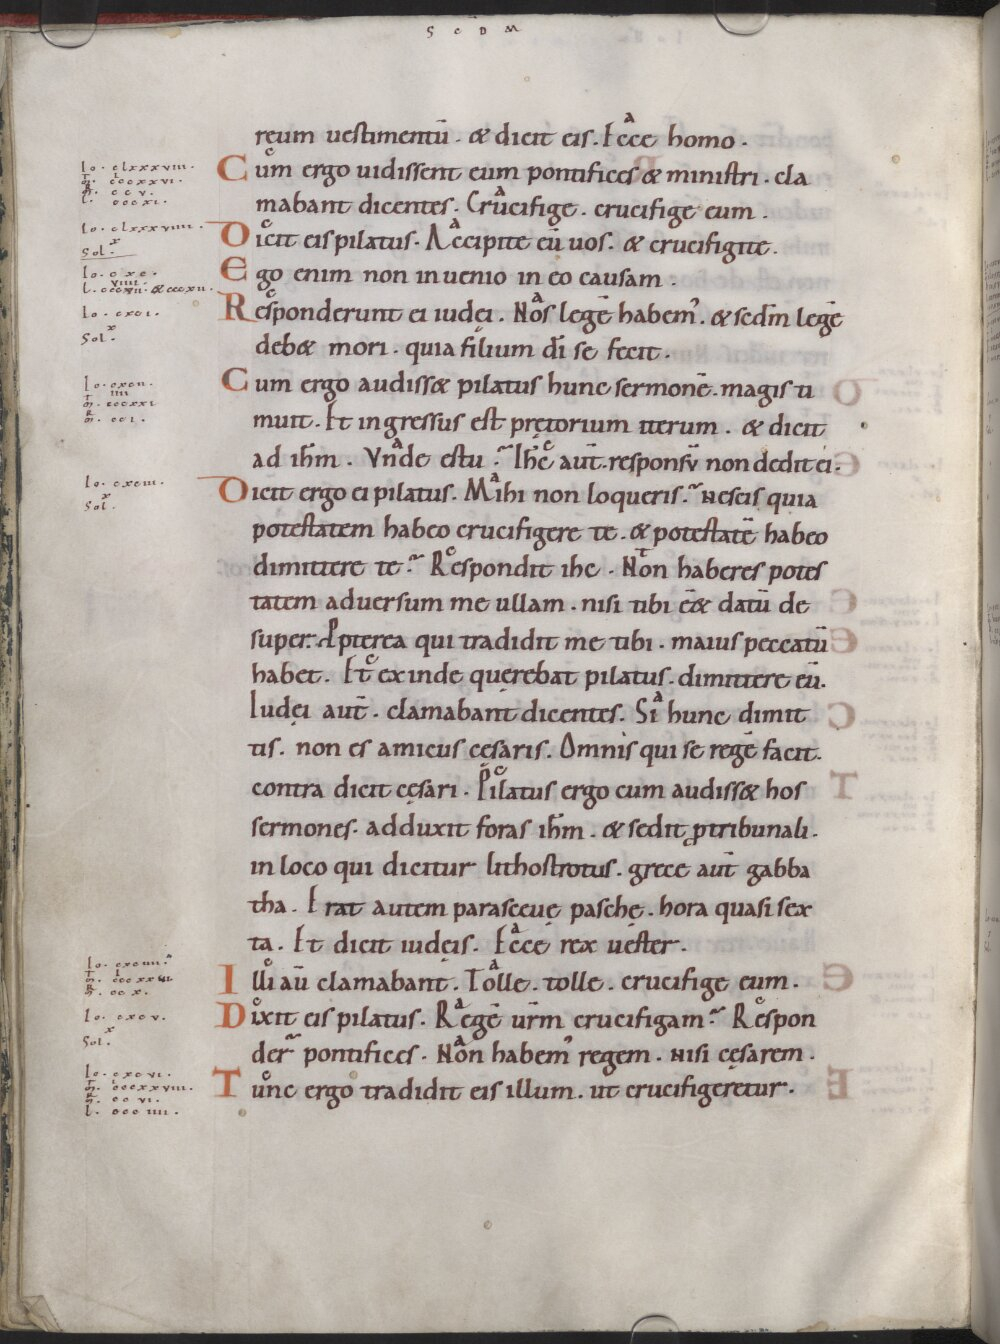 S C D M
reum uestimentū · & dicit eis · Ecce homo ·
Io · clxxxviii ·
m̄ · cccxxvi ·
R · ccv ·
L · cccxi ·
Cum ergo uidissent eum pontifices & ministri · cla
mabant dicentes · Crucifige · crucifige eum ·
Io · clxxxviiii ·
Sol ·
Dicit eis pilatus · Accipite eū uos · & crucifigite ·
Io · cxc ·
Ego enim non inuenio in eo causam ·
Io · cxci ·
Sol ·
Responderunt ei iudei · Nos legē habem' · & sedm̄ legē
deb& mori · quia filium dī se fecit ·
Io · cxcii ·
m̄ · cccxxi
m̄ · cci ·
Cum ergo audiss& pilatus hunc sermonē · magis ti
muit · Et ingressus est pretorium iterum · & dicit
ad ihm̄ · Vnde es tu · Ihc̄ aut̄ responsū non dedit ei ·
Io · cxciii ·
Sol ·
Dicit ergo ei pilatus · Mihi non loqueris · Nescis quia
potestatem habeo crucifigere te · & potestatē habeo
dimittere te · Respondit ihc · Non haberes potes
tatem aduersum me ullam · nisi tibi ēe& datū de
super · Ppterea qui tradidit me tibi · maius peccatū
habet · Et exinde querebat pilatus · dimittere eū ·
Iudei aut̄ · clamabant dicentes · Si hunc dimit
tis · non es amicus cesaris · Omnis qui se regē facit ·
contra dicit cesari · Pilatus ergo cum audiss& hos
sermones · adduxit foras ihm̄ · & sedit ptribunali ·
in loco qui dicitur lithostrotus · grece aut̄ gabba
tha · Erat autem parasceue pasche · hora quasi sex
ta · Et dicit iudeis · Ecce rex uester ·
Io · cxciiii ·
R · ccx ·
Illi aū clamabant · Tolle · tolle · crucifige eum ·
Io · cxcv ·
Sol ·
Dixit eis pilatus · Regē ur̄m crucifigam · Respon
der̄ pontifices · Non habem' regem · nisi cesarem ·
Io · cxcvi ·
m̄ · cccxxviii ·
R · ccvi ·
L · ccciiii ·
Tunc ergo tradidit eis illum · ut crucifigeretur ·